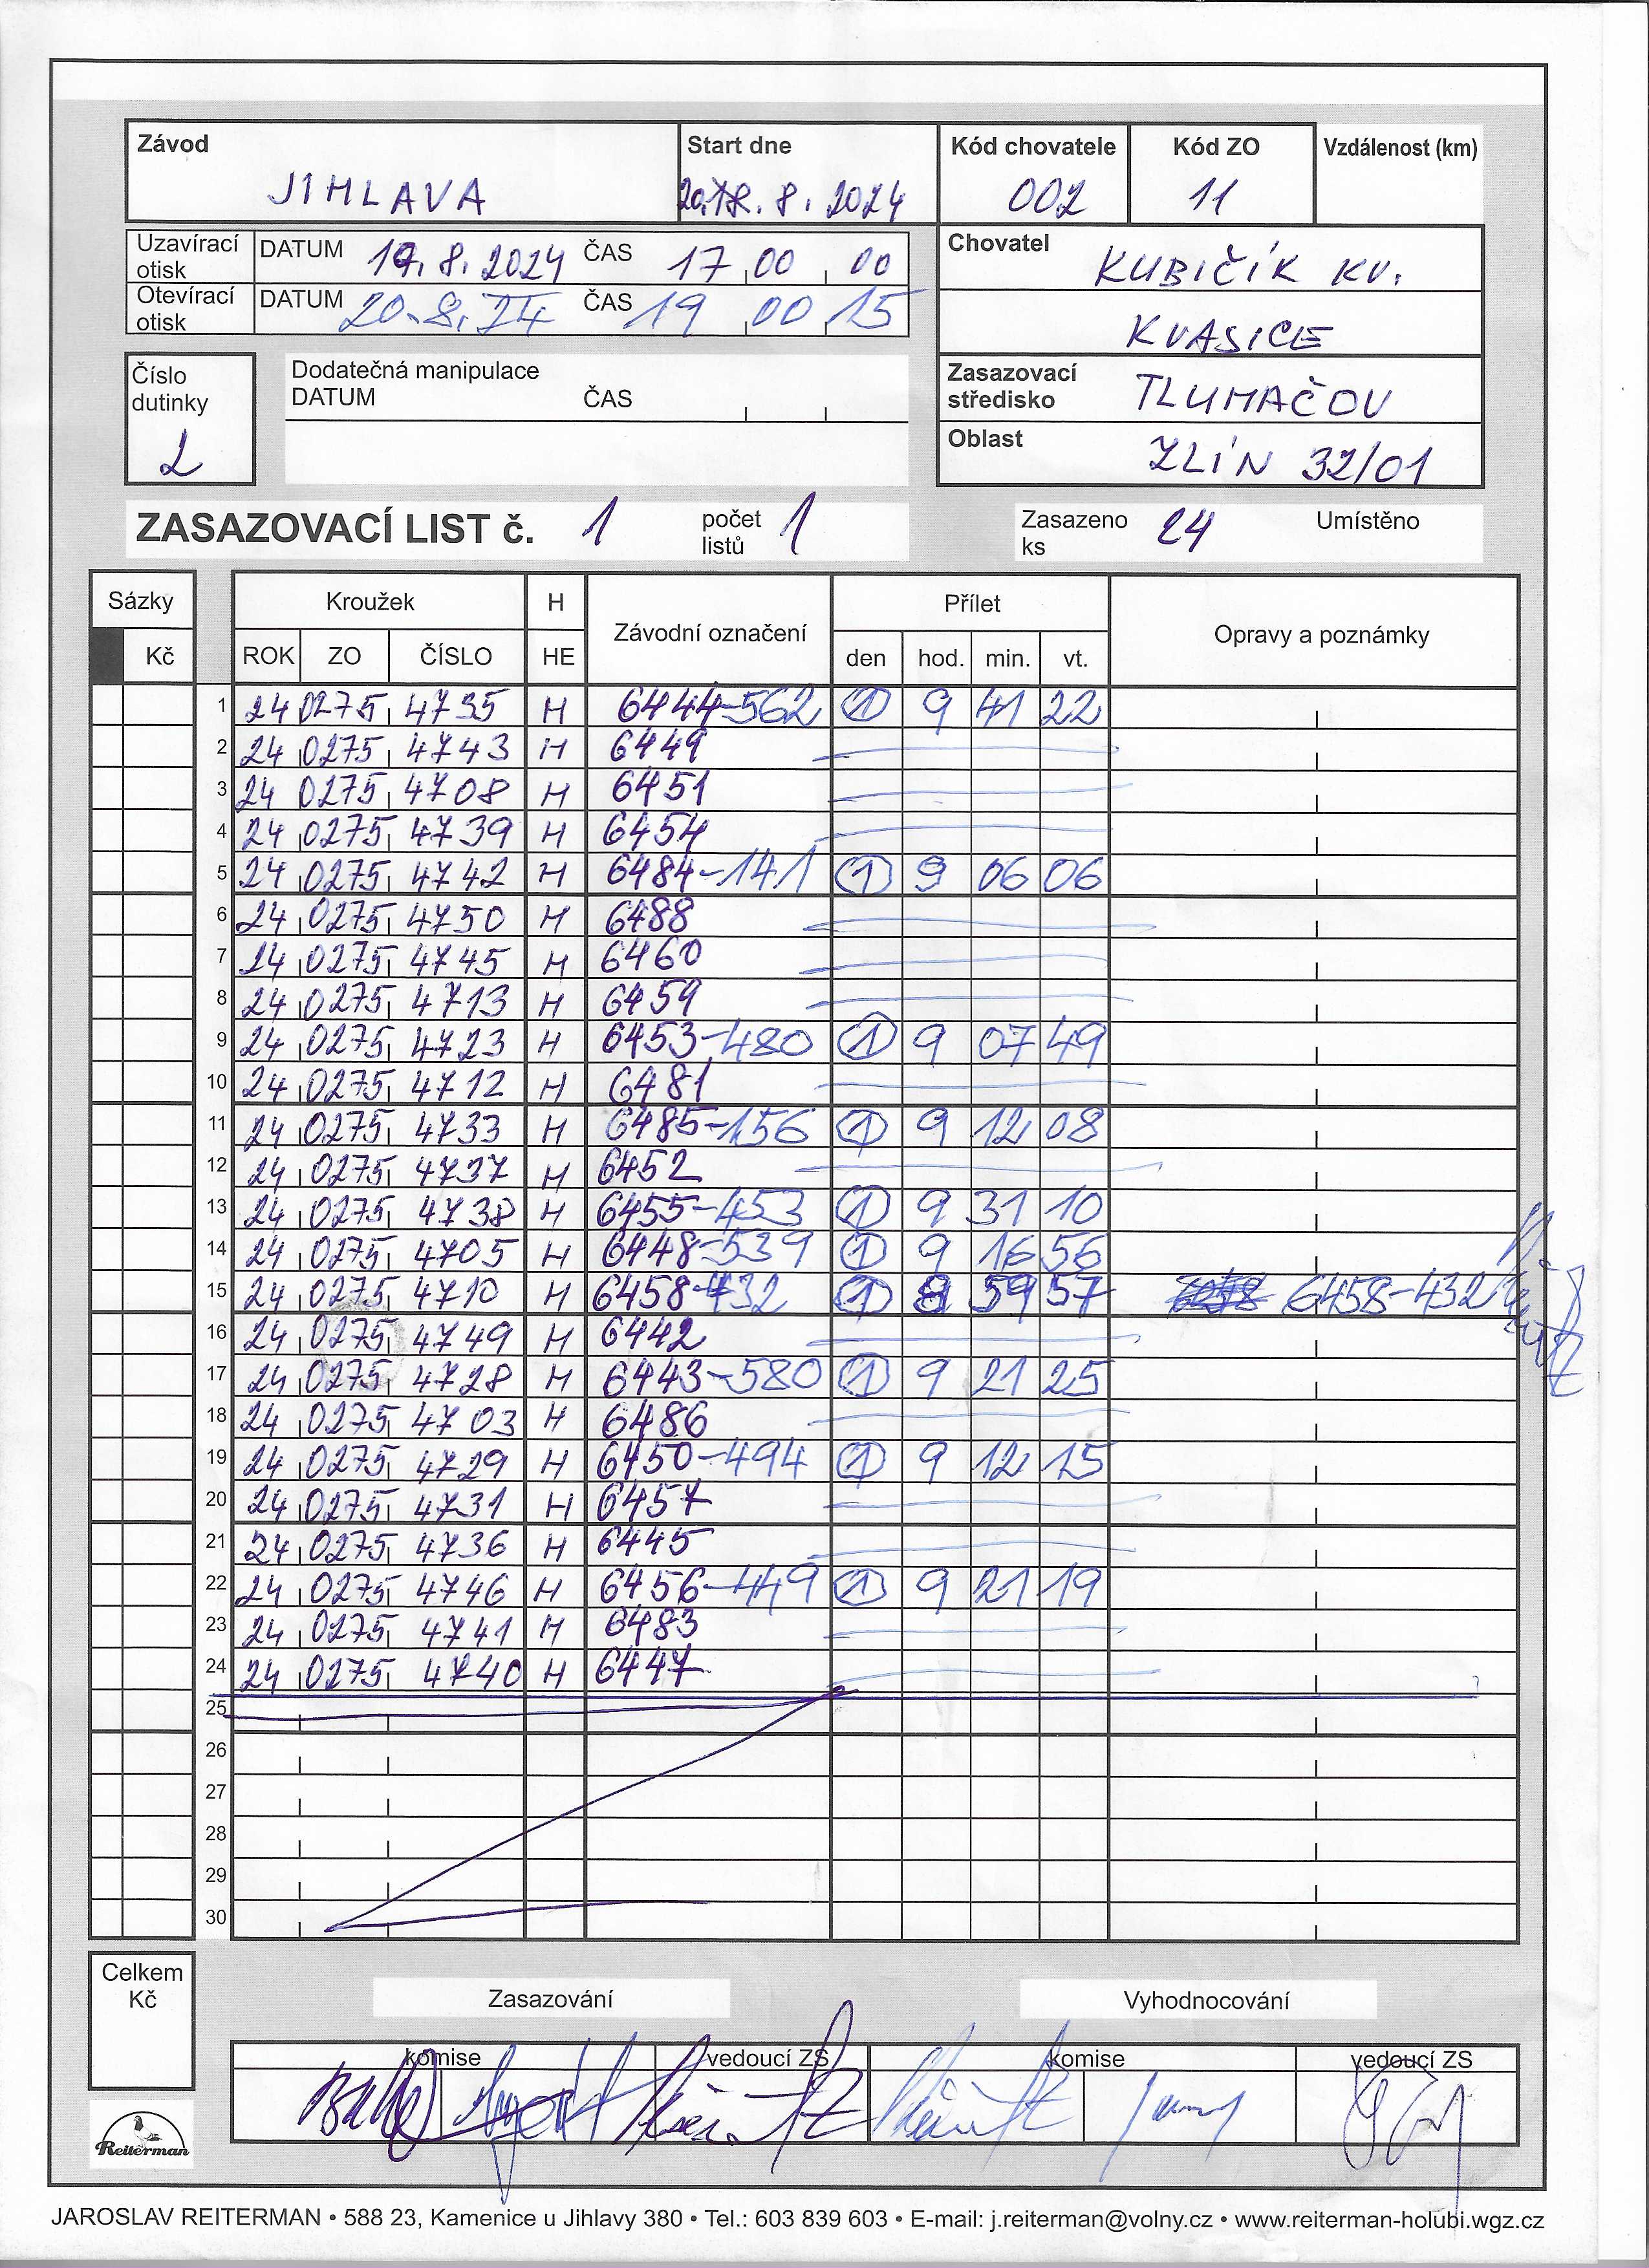 Závod Start dne Kód chovatele Kód ZO Vzdálenost (km)
JIHLAVA 8. 2024 002 11
Uzavírací otisk DATUM 19. 8. 2024 ČAS 17 00 00
Otevírací otisk DATUM 20. 8. 24 ČAS 19 00 15
Chovatel KUBIČÍK KV.
KVASICE
Číslo dutinky 2
Dodatečná manipulace
DATUM ČAS
Zasazovací středisko TLUMAČOV
Oblast ZLÍN 32/01
ZASAZOVACÍ LIST č. 1 počet listů 1 Zasazeno ks 24 Umístěno
Sázky Kroužek H Závodní označení Přílet Opravy a poznámky
Kč ROK ZO ČÍSLO HE den hod. min. vt.
1 24 0275 4735 H 6444-562 1 9 41 22
2 24 0275 4743 H 6449
3 24 0275 4708 H 6451
4 24 0275 4739 H 6454
5 24 0275 4742 H 6484-141 1 9 06 06
6 24 0275 4750 H 6488
7 24 0275 4745 H 6460
8 24 0275 4713 H 6459
9 24 0275 4723 H 6453-480 1 9 07 49
10 24 0275 4712 H 6481
11 24 0275 4733 H 6485-156 1 9 12 08
12 24 0275 4737 H 6452
13 24 0275 4738 H 6455-453 1 9 31 10
14 24 0275 4705 H 6448-539 1 9 16 56
15 24 0275 4710 H 6458-432 1 8 59 57 6458-432
16 24 0275 4749 H 6442
17 24 0275 4728 H 6443-580 1 9 21 25
18 24 0275 4703 H 6486
19 24 0275 4729 H 6450-494 1 9 12 15
20 24 0275 4731 H 6457
21 24 0275 4736 H 6445
22 24 0275 4746 H 6456-449 1 9 21 19
23 24 0275 4741 H 6483
24 24 0275 4740 H 6447
25
26
27
28
29
30
Celkem Kč
Zasazování Vyhodnocování
komise vedoucí ZS komise vedoucí ZS
Reiterman
JAROSLAV REITERMAN • 588 23, Kamenice u Jihlavy 380 • Tel.: 603 839 603 • E-mail: j.reiterman@volny.cz • www.reiterman-holubi.wgz.cz